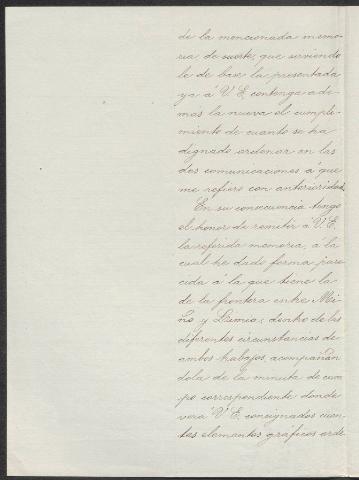 de la mencionada memo-
ria de suerte, que sirviendo
le de base la presentada
ya á V.E, contenga ade-
más la nueva el cumpli-
miento de cuanto se ha
dignado ordenar en las
dos comunicaciones á que
me refiero con anterioridad.
En su consecuencia tengo
el honor de remitir á V.E.
la referida memoria, á la
cual he dado forma pare
cida á la que tiene la
de la frontera entre Mi-
ño y Limia; dentro de las
diferentes circunstancias de
ambos trabajos, acompañan
dola de la minuta de cam
po correspondiente donde
verá V.E. consignados cuan-
tos elementos gráficos orde